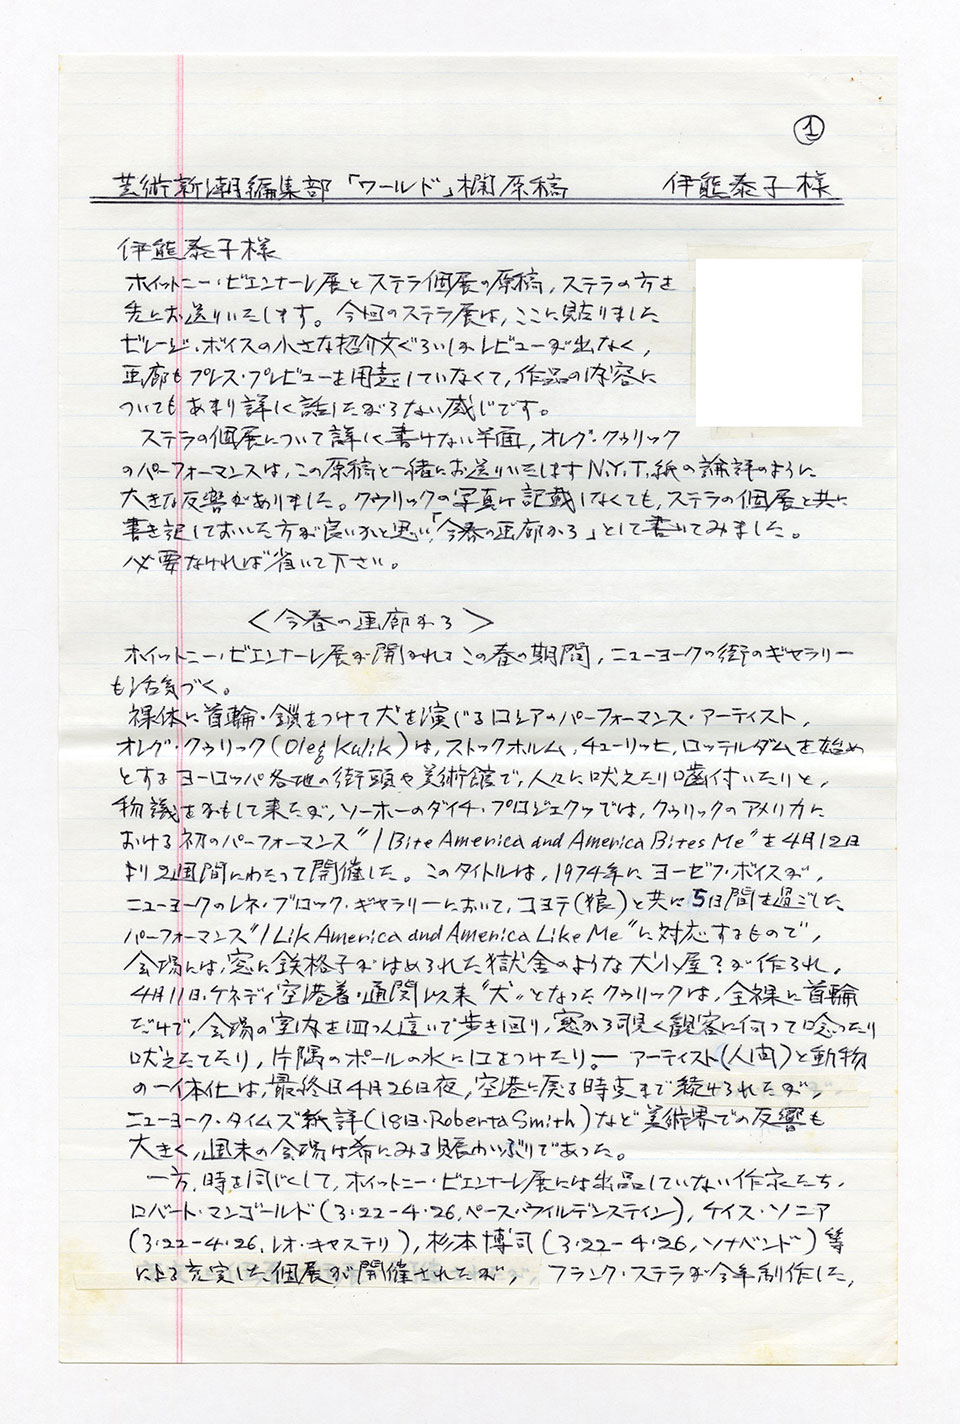 ①
芸術新潮編集部「ワールド」欄原稿　伊熊泰子様
伊熊泰子様
ホイットニー・ビエンナーレ展とステラ個展の原稿，ステラの方を
先にお送りいたします。今回のステラ展は，ここに貼りました
ビレージ・ボイスの小さな紹介文ぐらいしかレビューが出なく，
画廊もプレス・プレビューを用意していなくて，作品の内容に
ついてもあまり詳しく話したがらない感じです。
ステラの個展について詳しく書けない半面，オレグ・クゥリック
のパーフォーマンスは，この原稿と一緒にお送りいたしますN.Y.T.紙の論評のように
大きな反響がありました。クゥリックの写真は記載しなくても，ステラの個展と共に
書き記しておいた方が良いかと思い，「今春の画廊から」として書いてみました。
必要なければ省いて下さい。
〈今春の画廊から〉
ホイットニー・ビエンナーレ展が開かれるこの春の期間，ニューヨークの街のギャラリー
も活気づく。
裸体に首輪・鎖をつけて犬を演じるロシアのパーフォーマンス・アーティスト，
オレグ・クゥリック(Oleg Kulik)は，ストックホルム，チューリッヒ，ロッテルダムを始め
とするヨーロッパ各地の街頭や美術館で，人々に吠えたり噛付いたりと，
物議をかもして来たが，ソーホーのダイチ・プロジェクツでは，クゥリックのアメリカに
おける初のパーフォーマンス"I Bite America and America Bites Me"を4月12日
より2週間にわたって開催した。このタイトルは，1974年にヨーゼフ・ボイスが，
ニューヨークのレネ・ブロック・ギャラリーにおいて，コヨテ(狼)と共に5日間を過ごした
パーフォーマンス"I Lik America and America Like Me"に対応するもので，
会場には，窓に鉄格子がはめられた獄舎のような犬小屋？が作られ，
4月11日・ケネディ空港着・通関以来"犬"となったクゥリックは，全裸に首輪
だけで，会場の室内を四つん這いで歩き回り，窓から覗く観客に向って唸ったり
吠えたてたり，片隅のボールの水に口をつけたり― アーティスト(人間)と動物
の一体化は，最終日4月26日夜，空港に戻る時点まで続けられたが，
ニューヨーク・タイムズ紙評(18日・Roberta Smith)など美術界での反響も
大きく，週末の会場は希にみる賑わいぶりであった。
一方，時を同じくして，ホイットニー・ビエンナーレ展には出品していない作家たち，
ロバート・マンゴールド(3・22-4・26，ペース・ワイルデンステイン)，ケイス・ソニア
(3・22-4・26，レオ・キャステリ)，杉本博司(3・22-4・26，ソナベンド)等
による充実した個展が開催されたが，フランク・ステラが今年制作した，